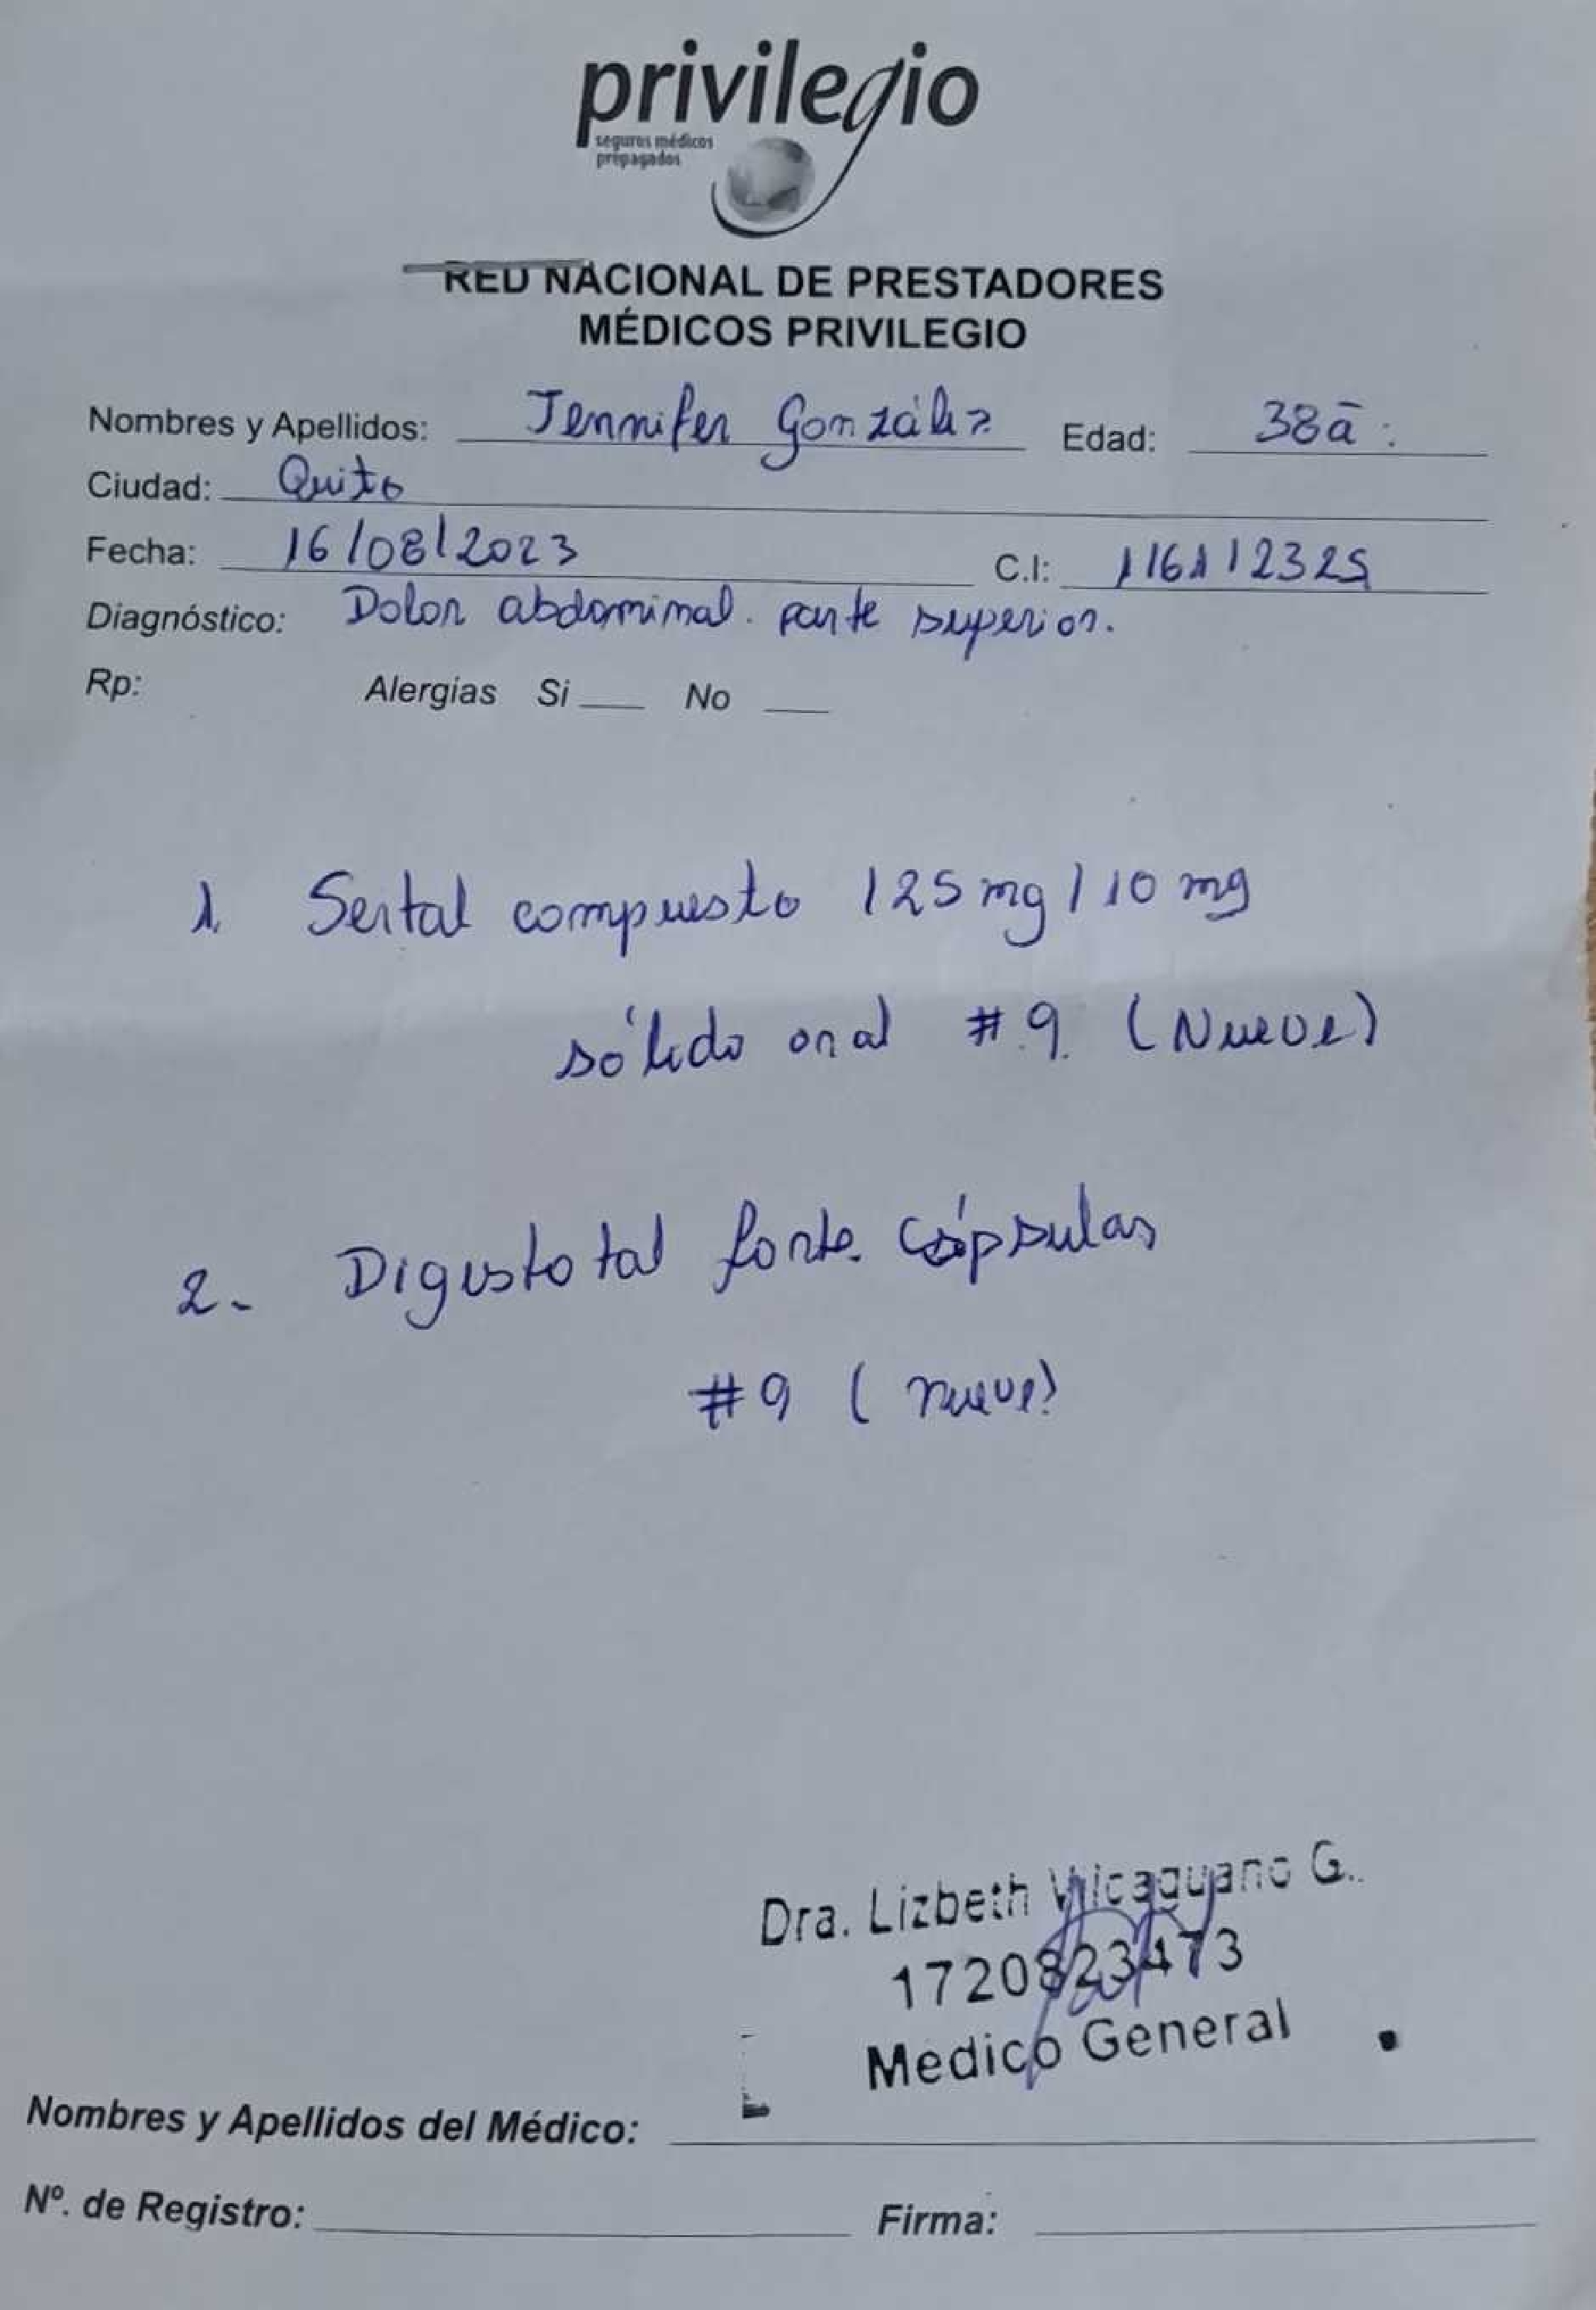 privilegio
seguros médicos
prepagados
RED NACIONAL DE PRESTADORES
MÉDICOS PRIVILEGIO
Nombres y Apellidos: Jennifer González Edad: 38ā.
Ciudad: Quito
Fecha: 16/08/2023 C.I: 116112325
Diagnóstico: Dolor abdominal. parte superior.
Rp: Alergias Si No
1. Sertal compuesto 125 mg / 10 mg
sólido oral # 9. (Nueve)
2. Digestotal forte. cápsulas
#9 (nueve)
Dra. Lizbeth G.
1720823473
Medico General
Nombres y Apellidos del Médico:
Nº. de Registro: Firma: